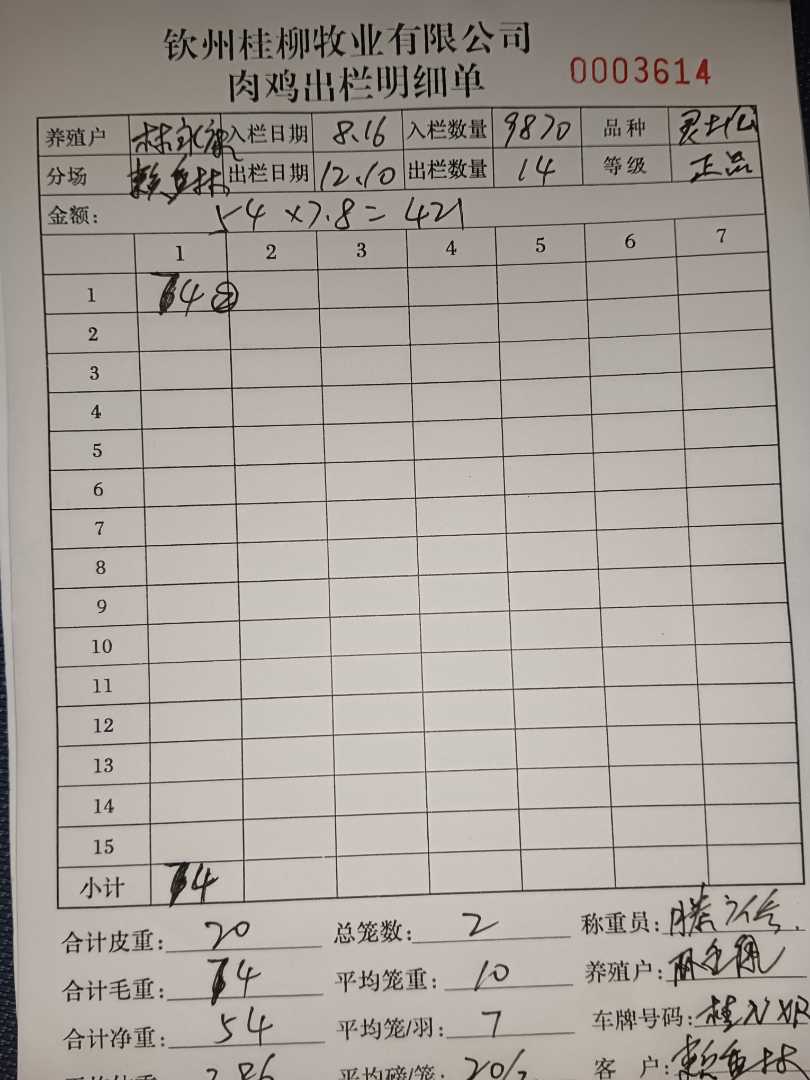 钦州桂柳牧业有限公司
肉鸡出栏明细单 0003614
养殖户 林永 入栏日期 8.16 入栏数量 9870 品种
分场 出栏日期 12.10 出栏数量 14 等级 正品
金额: 54 ×7.8= 421
1 2 3 4 5 6 7
1 74 ②
2
3
4
5
6
7
8
9
10
11
12
13
14
15
小计 74
合计皮重: 20 总笼数: 2 称重员:
合计毛重: 74 平均笼重: 10 养殖户:
合计净重: 54 平均笼/羽: 7 车牌号码: 桂N
平均体重 3.86 平均磅/笼: 客 户: